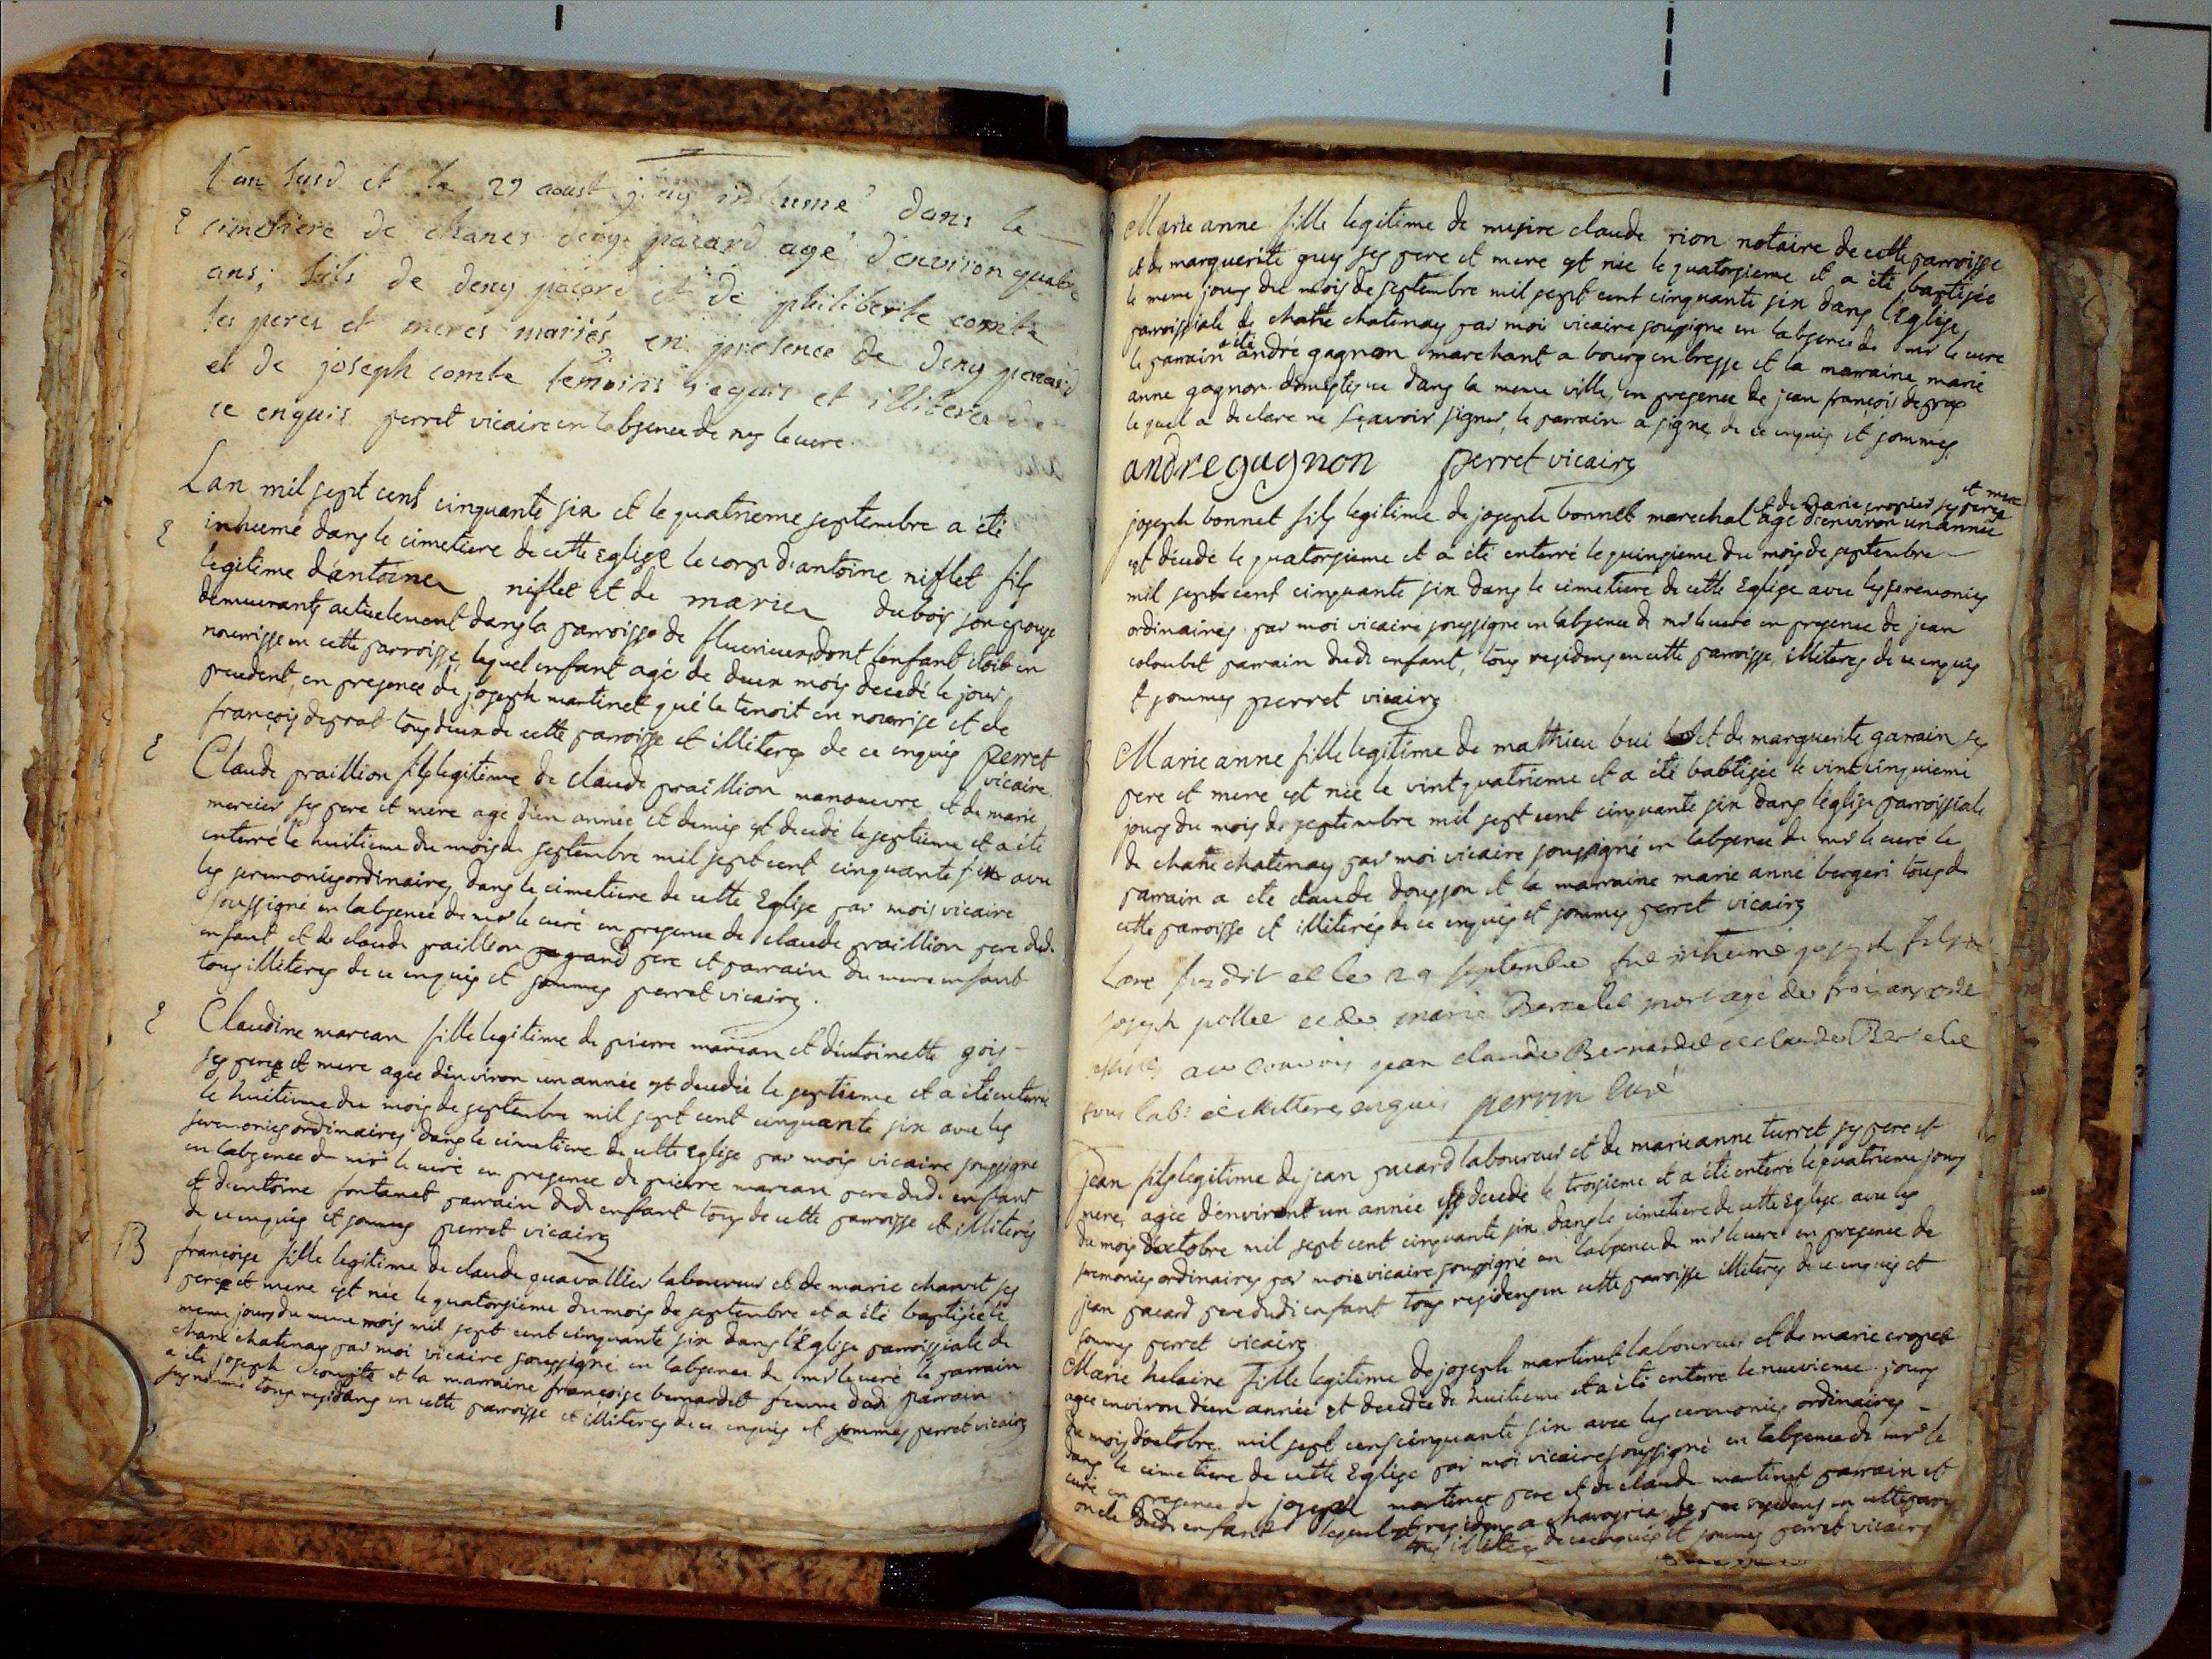 l'an susd et le 29 aoust j'ay inhumé dans le
cimetiere de chanes deny pacard agé d'environ quatre
ans, fils de deny pacard et de philiberte comte
ses peres et meres mariés en presence de deny pacard
et de joseph comte temoins requis et illiterés de
ce enquis perret vicaire en labsence de mr le cure
Lan mil sept cent cinquante six et le quatrieme septembre a été
inhumé dans le cimetiere de cette Eglise le corp d'antoine niflet fils
legitime d'antoine niflet et de marie dubois son epouse
demeurants actuelement dans la parroisse de fleurieux dont l'enfant etoit en
nourrisse en cette parroisse, lequel enfant agé de deux mois decedé le jour
precedent, en presence de joseph martinet qui le tenoit en nourrise et de
françois desprat tous deux de cette parroisse et illiteres de ce enquis perret
vicaire
Claude praillion fils legitime de claude praillion manoeuvre et de marie
mercier ses pere et mere agé d'un année et demis est decedé le septieme et a été
enterré le huitieme du mois de septembre mil sept cent cinquante six avec
les seremonies ordinaires dans le cimetiere de cette Eglise par mois vicaire
soussigné en labsence de mr le curé en presence de claude praillion pere dud
enfant et de claude praillion grand pere et parrain du meme enfant
tous illiteres de ce enquis et sommes perret vicaire
Claudine marean fille legitime de pierre marean et d'antoinette gois
ses pere et mere agée d'environ un année est decedée le septieme et a été enterré
le huitieme du mois de septembre mil sept cent cinquante six avec les
seremonies ordinaires dans le cimetiere de cette Eglise par mois vicaire soussigné
en labsence de mr le curé en presence de pierre marean pere dudi enfant
et d'antoine fontanet parrain dudi enfant tous de cette parroisse et illiterés
de ce enquis et sommes perret vicaire
B françoise fille legitime de claude quavallier laboureur et de marie charvet ses
pere et mere est née le quatorsieme du mois de septembre et a été baptisée le
meme jours du meme mois mil sept cent cinquante six dans l'Eglise parroissiale de
chane chatenay par moi vicaire soussigné en labsence de mr le curé le parrain
a été joseph comte et la marraine françoise bernardet femme dudi parrain
susnommé tous residans en cette parroisse et illiteres de ce enquis et sommes perret vicaire
Marie anne fille legitime de mesire claude rion notaire de cette parroisse
et de marguerite guy ses pere et mere est née le quatorsieme et a été baptisée
le meme jours du mois de septembre mil sept cent cinquante six dans l'Eglise
parroissiale de chane chatenay par moi vicaire soussigné en labsence de mr le cure
le parrain a été andré gagnon marchant a bourg en bresse et la marraine marie
anne gagnon domestique dans la meme ville, en presence de jean françois desprat
lequel a declaré ne sçavoir signer, le parrain a signé de ce enquis et sommes
andre gagnon perret vicaire
et mere
joseph bonnet fils legitime de joseph bonnet marechal et de marie cropier ses pere agé d'environ un année
est decedé le quatorsieme et a été enterré le quinsieme du mois de septembre
mil sept cent cinquante six dans le cimetiere de cette Eglise avec les seremonies
ordinaires par moi vicaire soussigné en labsence de mr le curé en presence de jean
coloubet parrain dudi enfant, tous residens en cette parroisse, illiteres de ce enquis
et sommes perret vicaire
Marie anne fille legitime de mathieu bui et de marguerite garrain ses
pere et mere est née le vint quatrieme et a été babtisée le vint cinquieme
jours du mois de septembre mil sept cent cinquante six dans l'eglise parroissiale
de chane chatenay par moi vicaire soussigné en labsence de mr le curé le
parrain a ete claude dousson et la marraine marie anne bergeri tous de
cette parroisse et illiterés de ce enquis et sommes perret vicaire
Lan susdit et le 29 septembre fut inhumé joseph fils de
joseph pollet et de marie Bercelet mort agé de trois ans
au convois jean claude Bernardet et claude Bercelet
tous lab: et illitteres enquis perrin curé
jean fils legitime de jean pacard laboureur et de marie anne turret ses pere et
mere, agée d'environt un année est decedé le troisieme et a été enterré le quatrieme jours
du mois d'octobre mil sept cent cinquante six dans le cimetiere de cette Eglise avec les
seremonies ordinaires par mois vicaire soussigné en labsence de mr le curé en presence de
jean pacard pere dudi enfant tous residens en cette parroisse illiteres de ce enquis et
sommes perret vicaire
Marie helaine fille legitime de joseph martinet laboureur et de marie cropet
agée environ d'un année et decedée de huitieme et a été enterré le neuvieme jours
du mois d'octobre mil sept cens cinquante six avec les ceremonies ordinaires
dans le cimetiere de cette Eglise par moi vicaire soussigné en labsence de mr le
curé en presence de joseph martinet pere et de claude martinet parrain et
oncle dudi enfant lequel residens a chavagria le pere residens en cette parr
tous illiteres de ce enquis et sommes perret vicaire